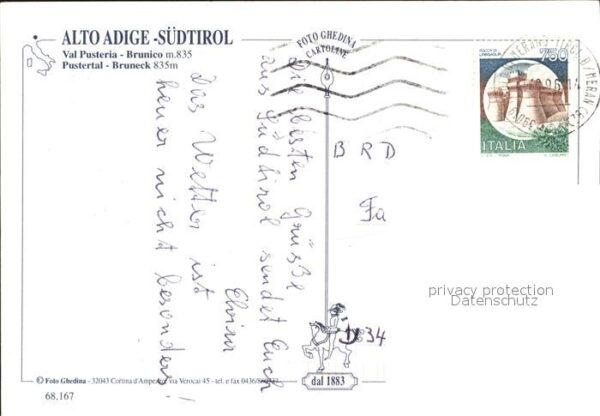 ALTO ADIGE - SÜDTIROL
Val Pusteria - Brunico m.835
Pustertal - Bruneck 835m
FOTO GHEDINA
CARTOLINE
ROCCA DI URBISAGLIA
750
ITALIA
Die besten Grüße
aus Südtirol sendet Euch
Das Wetter ist
heuer nicht besonders!
B R D
Fa
privacy protection
Datenschutz
D 834
dal 1883
© Foto Ghedina - 32043 Cortina d'Ampezzo, via Verocai 45 - tel. e fax 0436/
68.167